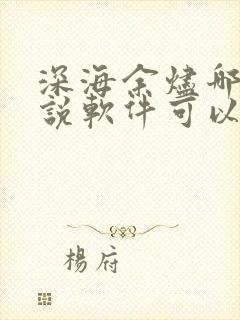 深海余燼哪
說軟件可以
楊府